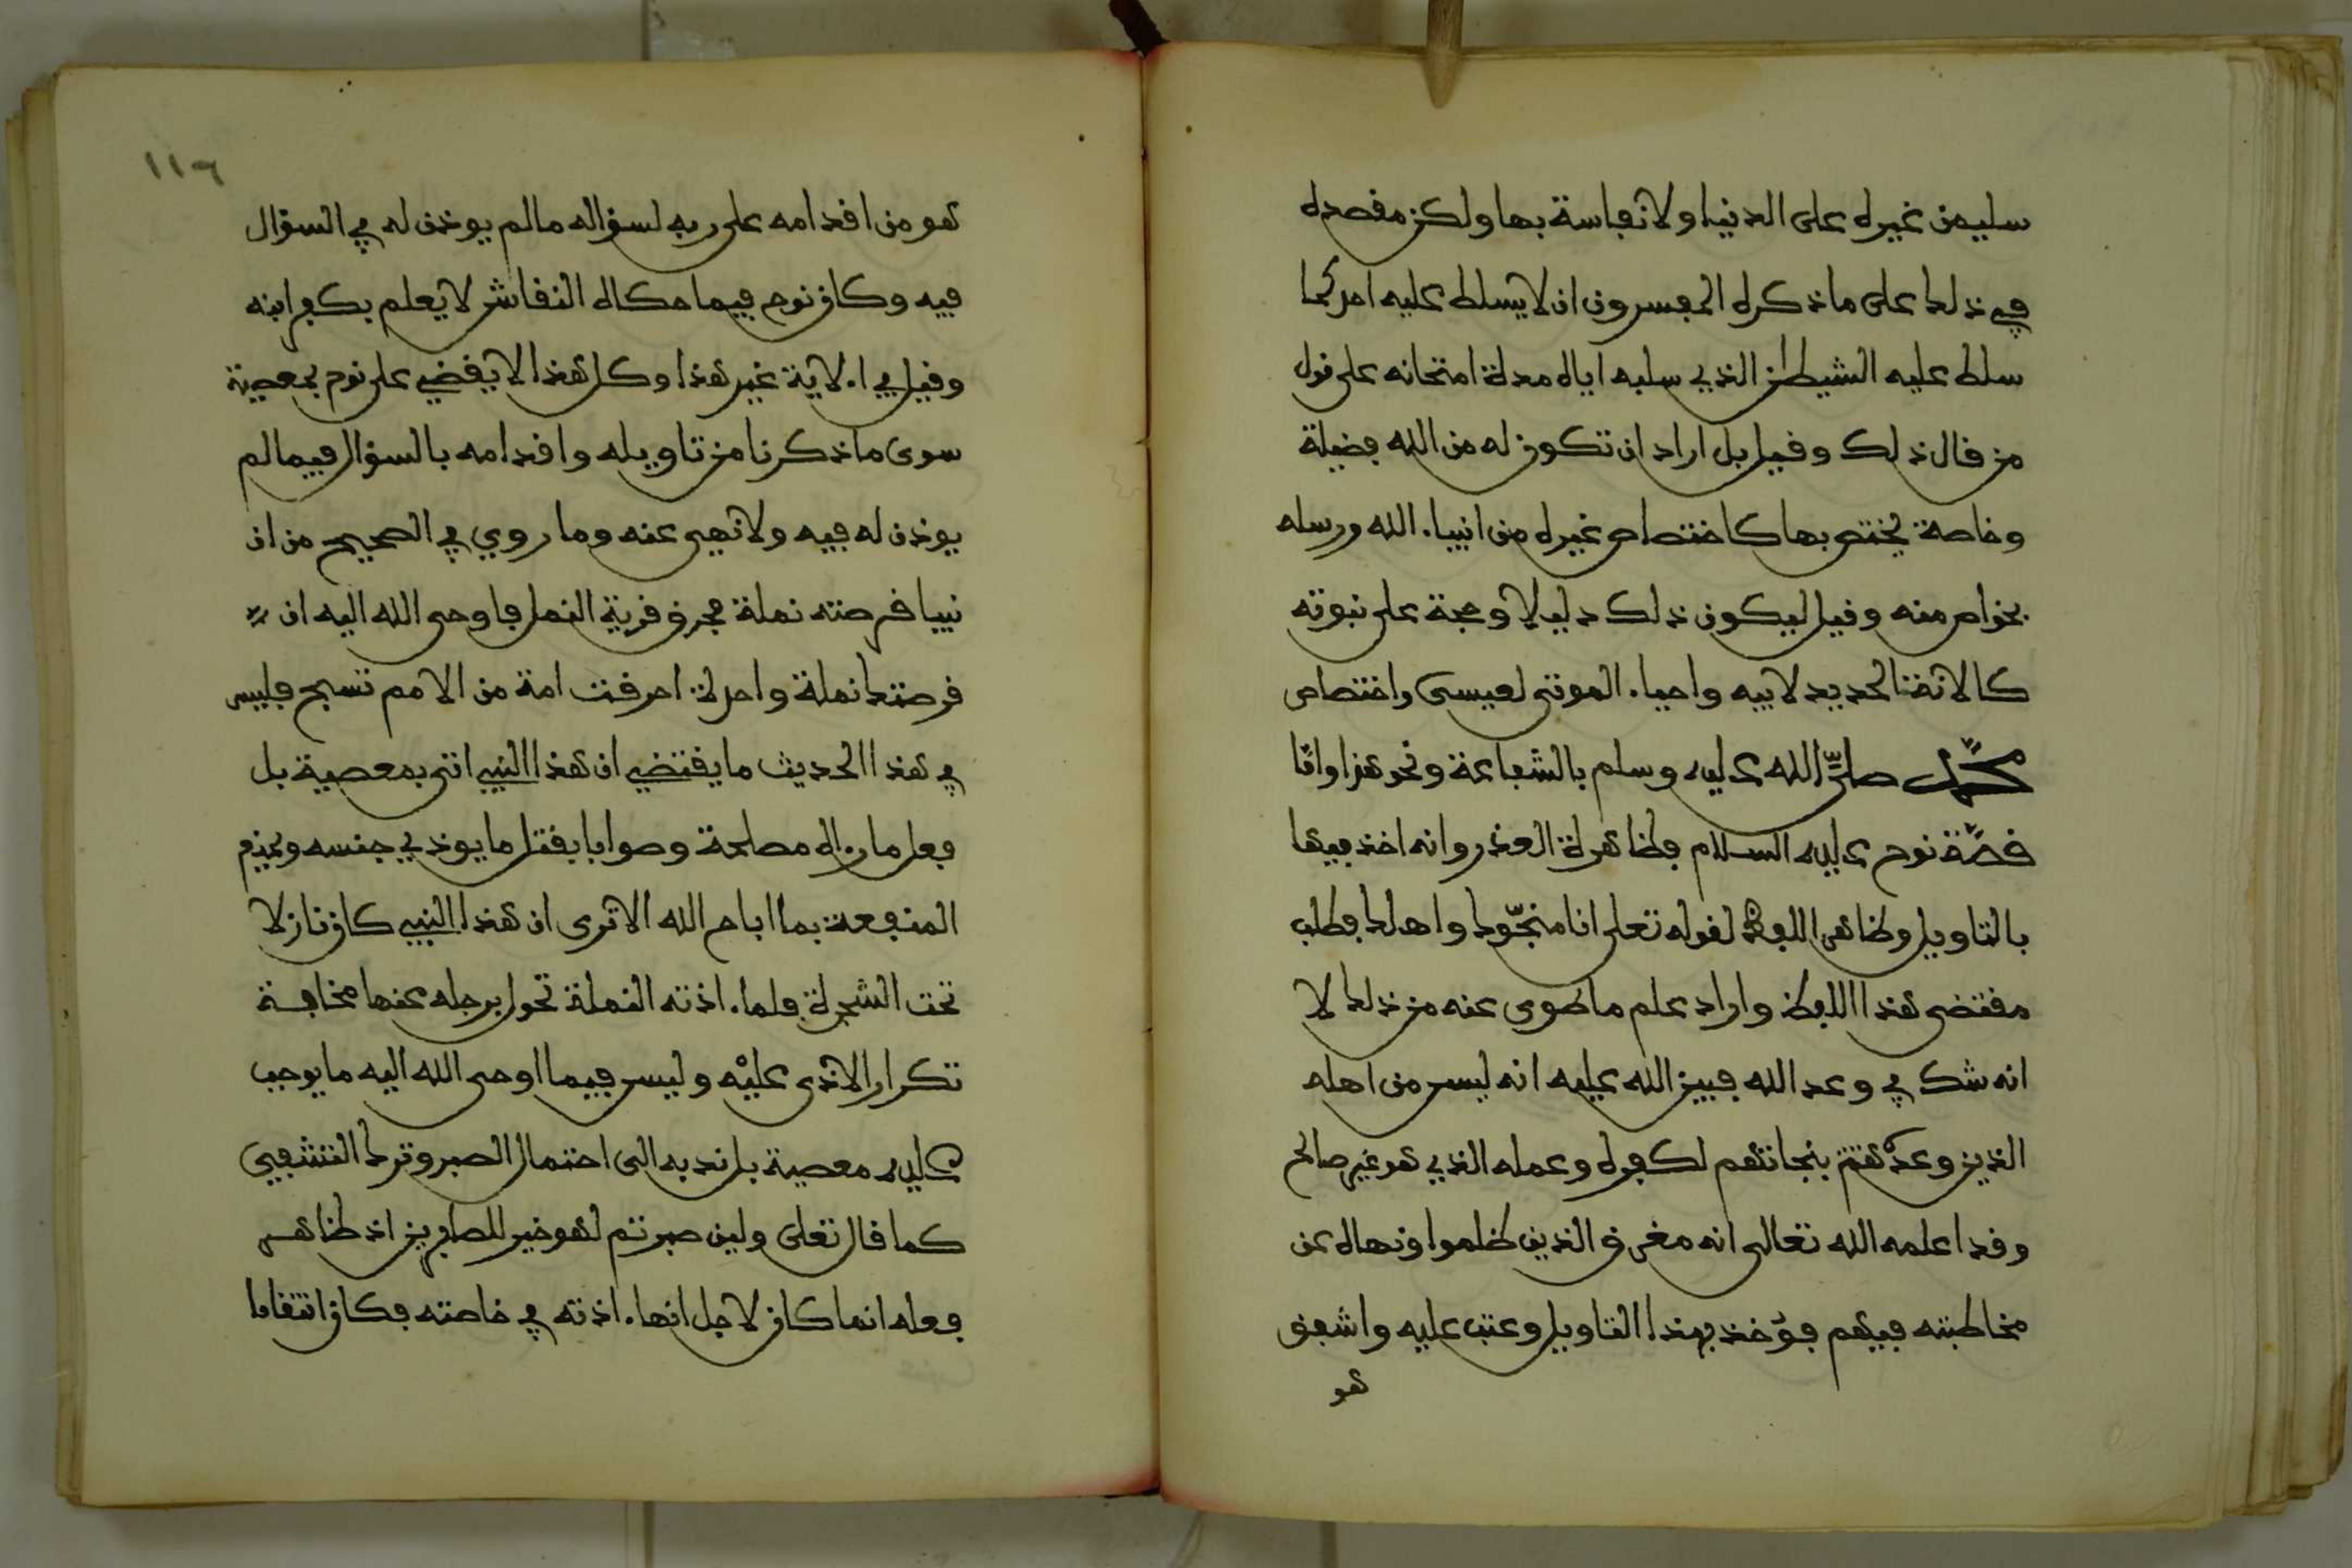 سليمن غيرة على الدنيا ولا نفاسة بها ولكن مقصده
في ذلك على ما ذكره المفسرون ان لا يسلط عليه احد كما
سلط عليه الشيطن الذي سلبه اياه مدة امتحانه على قول
من قال ذلك وقيل بل اراد ان تكون له من الله فضيلة
وخاصة يختص بها كاختصاص غيره من انبياء الله ورسله
بخواص منه وقيل ليكون ذلك دليلا وحجة على نبوته
كالانة الحديد لابيه واحياء الموتى لعيسى واختصاص
محمد صلى الله عليه وسلم بالشفاعة ونحو هذا واما
قصة نوح عليه السلام فظاهرة العذر وانه اخذ فيها
بالتاويل وظاهر اللفظ لقوله تعلى انا منجوك واهلك فطلب
مقتضى هذا اللفظ واراد علم ما طوى عنه من ذلك لا
انه شك في وعد الله فبين الله عليه انه ليس من اهله
الذين وعده بنجاتهم لكفره وعمله الذي هو غير صالح
وقد اعلمه الله تعالى انه مغرق الذين ظلموا ونهاه عن
مخاطبته فيهم فؤخذ بهذا التاويل وعتب عليه واشفق
هو
١١٦
هو من اقدامه على ربه لسؤاله ما لم يوذن له في السؤال
فيه وكان نوح فيما حكاه النقاش لا يعلم بكفر ابنه
وقيل في الاية غير هذا وكل هذا لا يقضي على نوح بمعصية
سوى ما ذكرنا من تاويله واقدامه بالسؤال فيما لم
يوذن له فيه ولا نهي عنه وما روي في الصحيح من ان
نبيا قرصته نملة فحرق قرية النمل فاوحى الله اليه ان
قرصتك نملة واحدة احرقت امة من الامم تسبح فليس
في هذا الحديث ما يقتضي ان هذا النبي اتى بمعصية بل
فعل ما راه مصلحة وصوابا بقتل ما يوذي جنسه ويمنع
المنفعة بما اباح الله الا ترى ان هذا النبي كان نازلا
تحت الشجرة فلما اذته النملة تحول برحله عنها مخافة
تكرار الاذى عليه وليس فيما اوحى الله اليه ما يوجب
عليه معصية بل ندبه الى احتمال الصبر وترك التشفي
كما قال تعلى ولين صبرتم لهو خير للصابرين اذ ظاهر
فعله انما كان لاجل انها اذته في خاصته فكان انتقاما